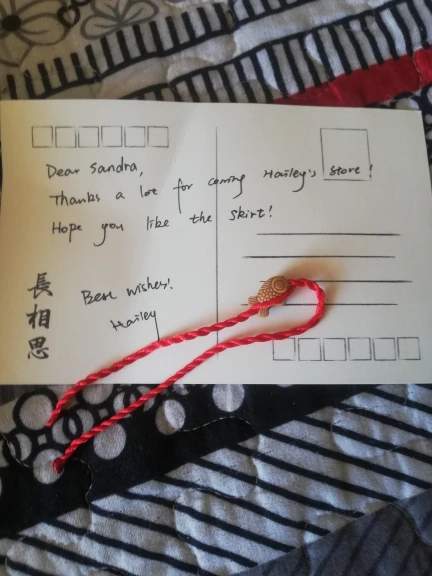 Dear Sandra,
Thanks a lot for coming Hailey's store!
Hope you like the skirt!
Best wishes!
Hailey
長相思